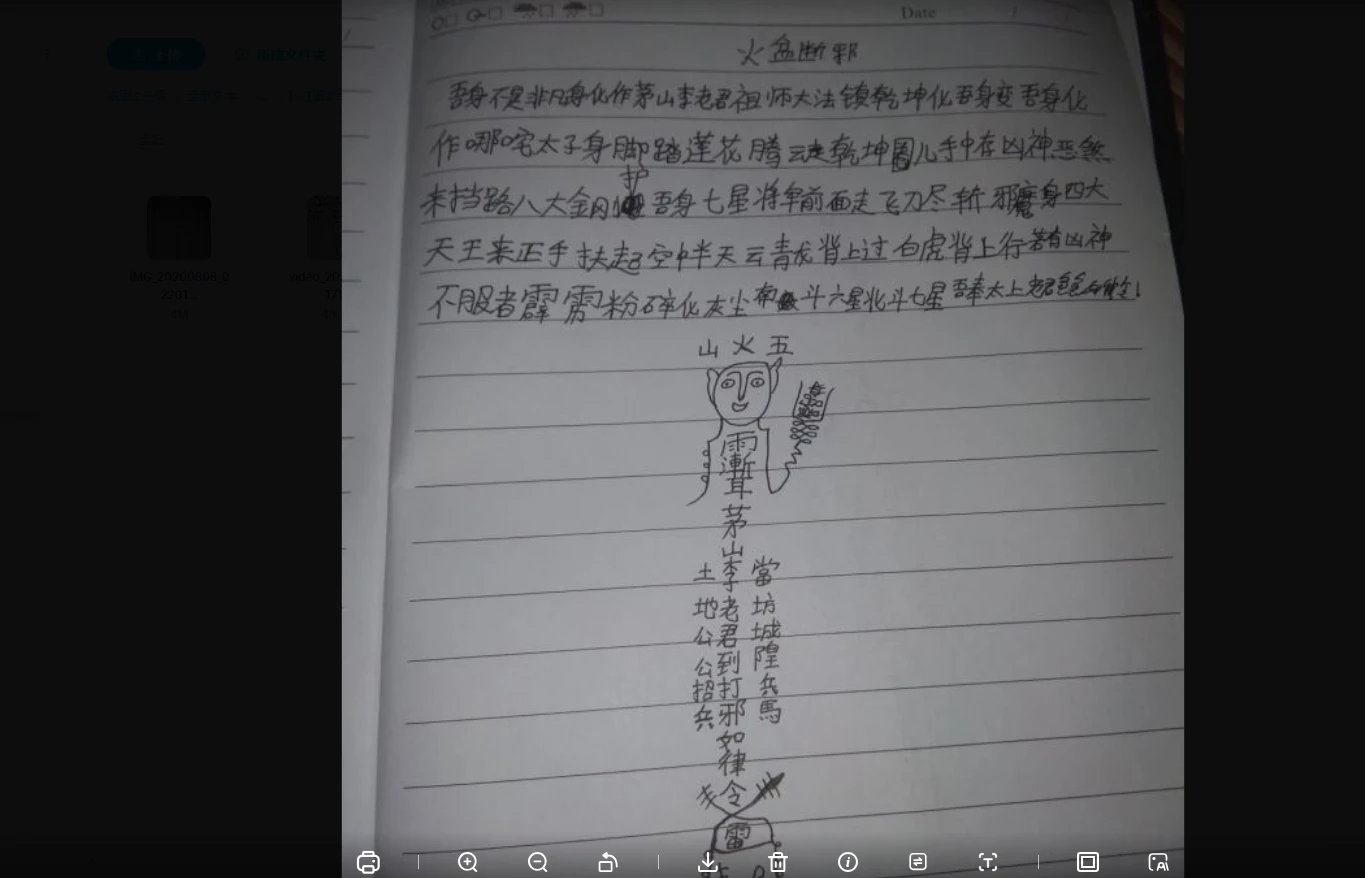 Date
火盆断邪
吾身不是非凡身化作茅山李老君祖师大法镇乾坤化吾身变吾身化
作哪咤太子身脚踏莲花腾云走乾坤圈儿手中存凶神恶煞
来挡路八大金刚护吾身七星将军前面走飞刀尽斩邪魔身四大
天王来正手扶起空中半天云青龙背上过白虎背上行若有凶神
不服者霹雳粉碎化灰尘南斗六星北斗七星吾奉太上老君
山火五
雨
漸
耳
茅
山
土李當
地老坊
公君城
公到隍
招打兵
兵邪馬
如
律
令
雷